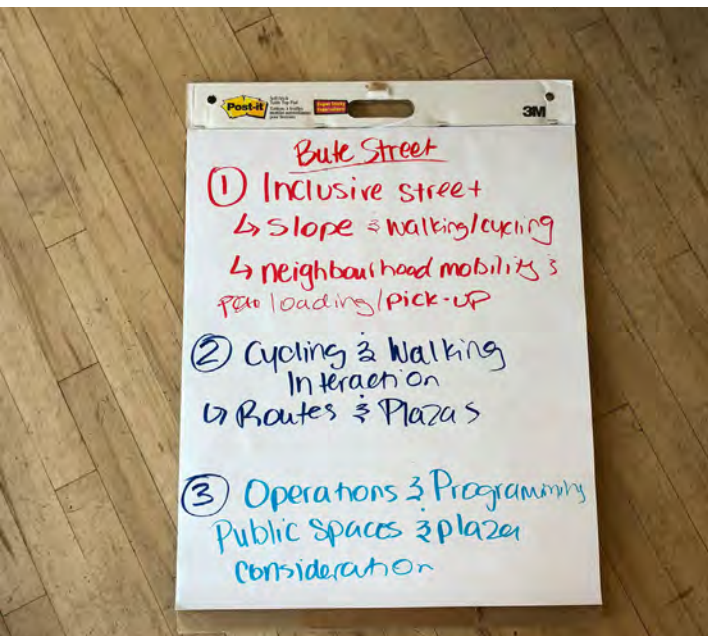 Post-it
Super Sticky
3M
Bute Street
① Inclusive street
↳ Slope & walking/cycling
↳ neighbourhood mobility &
loading/pick-up
② Cycling & Walking
Interaction
↳ Routes & Plazas
③ Operations & Programming
Public Spaces & plaza
consideration